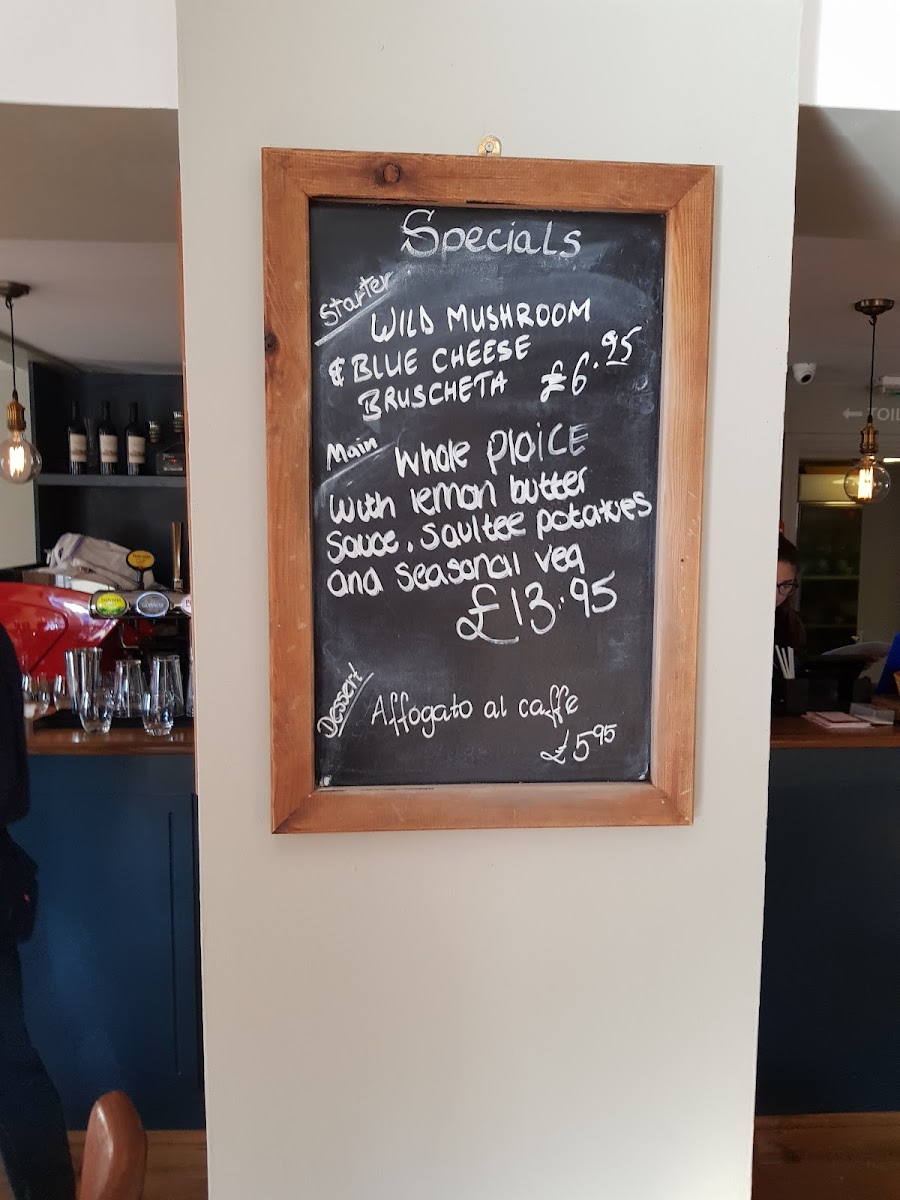 Specials
Starter
WILD MUSHROOM
& BLUE CHEESE
BRUSCHETA £6.95
Main Whole PLAICE
with lemon butter
Sauce, Saultee potatoes
and seasonal veg
£13.95
Dessert
Affogato al caffe
£5.95
← TOIL
GUINNESS